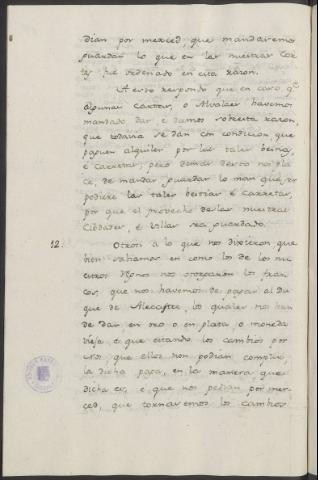 dian por merced, que mandaremo
guardar lo que en las nuestras Cor
tes fue ordenado en esta razon.
A esto respondo que en caso q.e
algunas cartas, o Alvalaes havemos
mandado dar, e damos sobre esta razon,
que todavia se dan con condicion que
paguen alquiler por las tales bestias,
e carretas; pero demas desto nos pla
ce, de mandar guardar lo mas que ser
podiere las tales bestias e carretas,
por que el provecho de las nuestras
Cibdades, e Villas sea guardado.
12. Otrosi a lo que nos dixieron que
bien sabiamos en como los de los nu
estros Rgnos nos otorgaron los fran
cos, que nos havemos de pagar al du
que de Alecastre, los quales nos han
de dar, en oro o en plata, o moneda
vieja, e que estando los cambios por
Nos que ellos non podian complir
la dicha paga, en la manera que
dicha es, e que nos pedian por mer
ced, que tornaremos los cambios